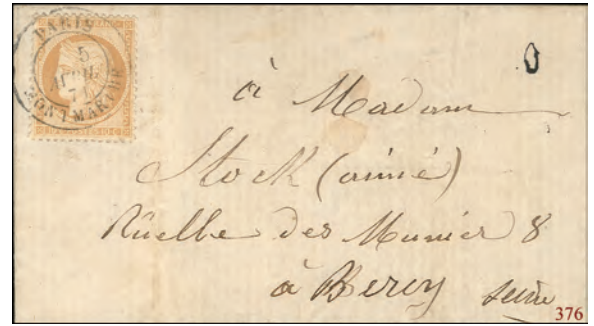 PARIS
5
AVRIL
71
MONTMARTRE
à Madame
Stock (ainé)
Rüelle des Munier 8
à Bercy Seine
376